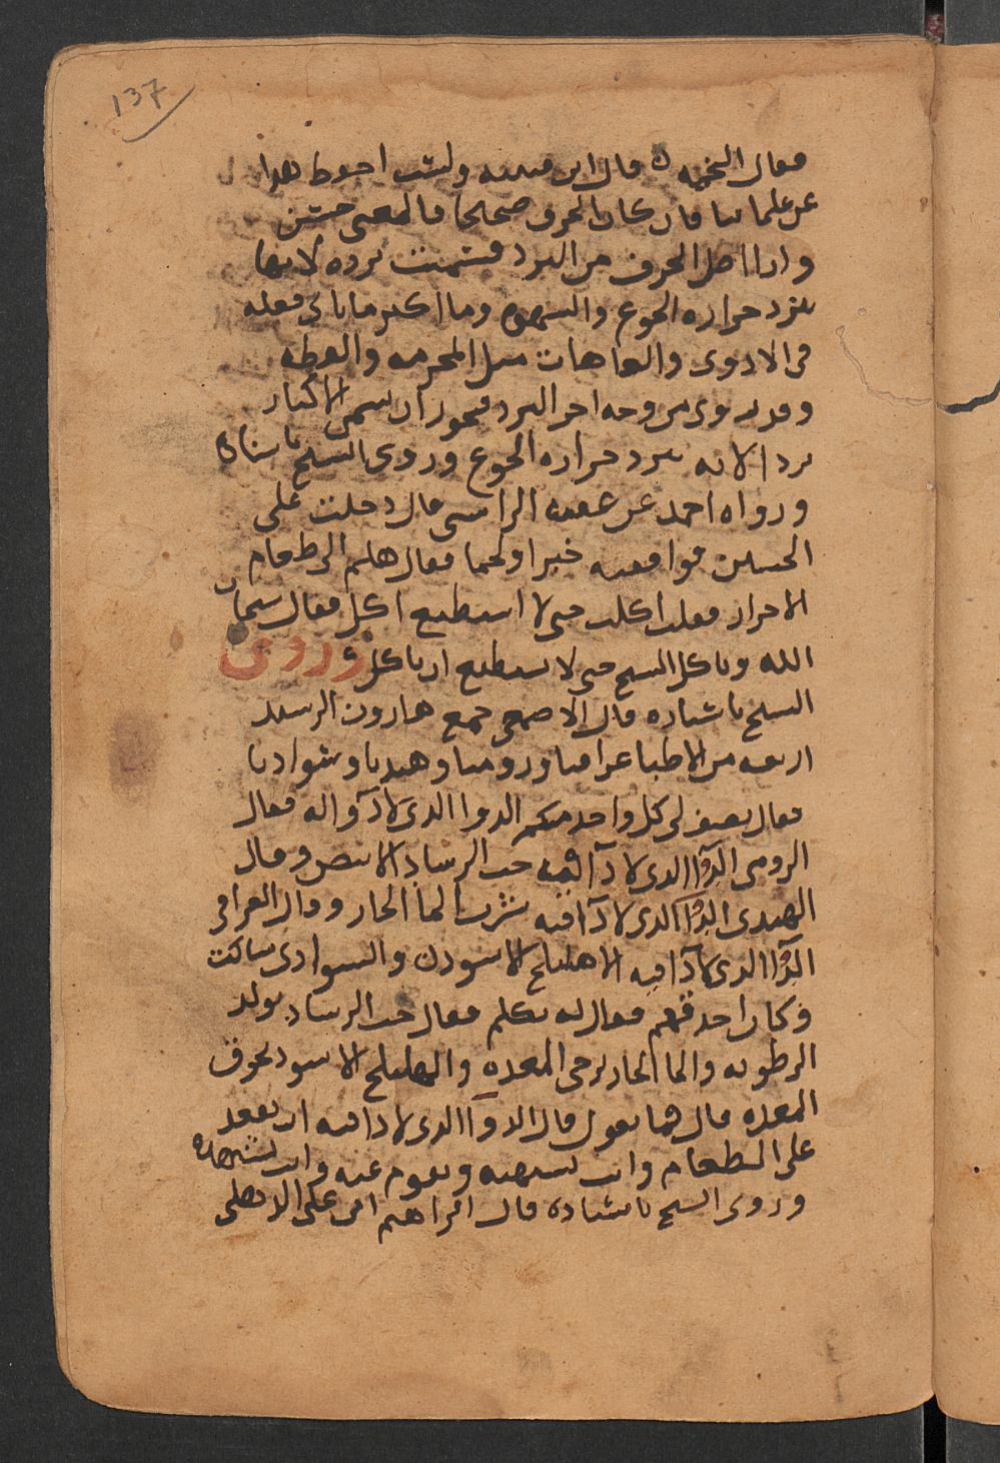 137
فقال التخمة قال ابن قتيبة ولست احفظ هذا
عن علمائنا فان كان الحرف صحيحا فالمعنى حسن
واذا اصل الحرف من البرد فسميت بردة لانها
تبرد حرارة الجوع والشهوة وما اكثر ما ياتي فعله
في الادوى والعاهات مثل
وقد يروى من وجه اخر البرد فيجوز ان يسمى الاكثار
بردا لانه يبرد حرارة الجوع وروى الشيخ باسناده
ورواه احمد عن عقبة الراسبي قال دخلت على
الحسن فوافقته خبزا ولحما فقال هلم الى طعام
الاحرار فقلت اكلت حتى لا استطيع اكل فقال سبحان
الله وياكل المسلم حتى لا يستطيع ان ياكل وروى
الشيخ باسناده قال الاصمعي جمع هارون الرشيد
اربعة من الاطبا عراقيا وروميا وهنديا وسواديا
فقال يصف لي كل واحد منكم الدوا الذي لا دآ فيه فقال
الرومي الدوآ الذي لا دآ فيه حب الرشاد الابيض وقال
الهندي الدوآ الذي لا دآ فيه شرب الما الحار وقال العراقي
الدوآ الذي لا دآ فيه الاهليلج الاسود والسوادي ساكت
وكان احدقهم فقال له تكلم فقال حب الرشاد يولد
الرطوبة والما الحار يرخي المعدة والهليلج الاسود يحرق
المعدة قال فما تقول قال الدوآ الذي لا دا فيه ان تقعد
على الطعام وانت تشتهيه وتقوم عنه وانت تشتهيه
وروى الشيخ باسناده قال ابراهيم ابن علي الذهلي